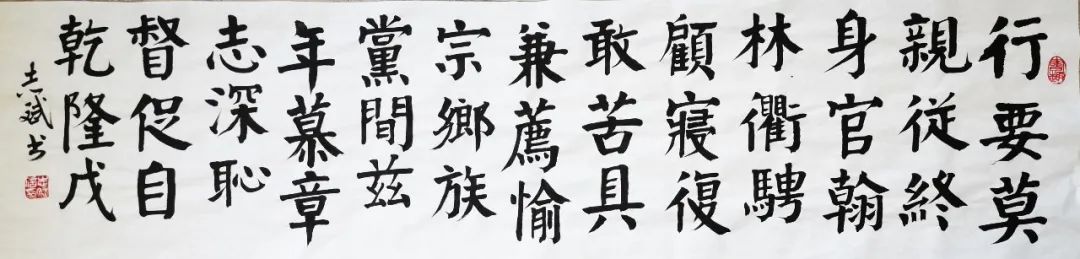 行要莫
親從終
身官翰
林衢騁
顧寢復
敢苦具
兼薦愉
宗鄉族
黨間茲
年慕章
志深恥
督促自
乾隆戊
志斌书